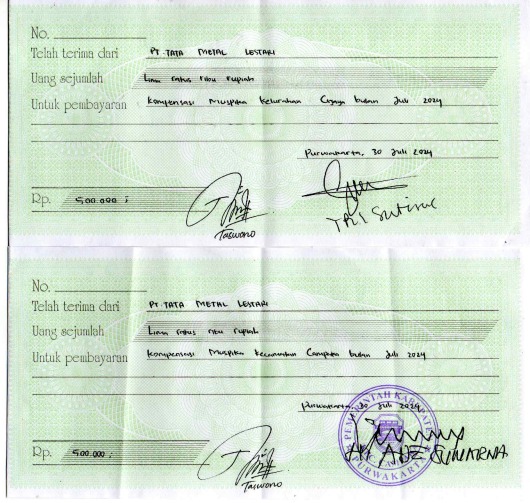 No.
Telah terima dari PT. TATA METAL LESTARI
Uang sejumlah Lima ratus ribu rupiah
Untuk pembayaran kompensasi Muspika Kelurahan bulan Juli 2024
Purwakarta, 30 Juli 2024
Rp. 500.000 ;
Taswono
TRI
No.
Telah terima dari PT. TATA METAL LESTARI
Uang sejumlah Lima ratus ribu rupiah
Untuk pembayaran kompensasi Muspika Kecamatan Campaka bulan Juli 2024
Purwakarta, 30 Juli 2024
PEMERINTAH KABUPATEN
PURWAKARTA
Rp. 500.000 ;
Taswono
SUMARNA